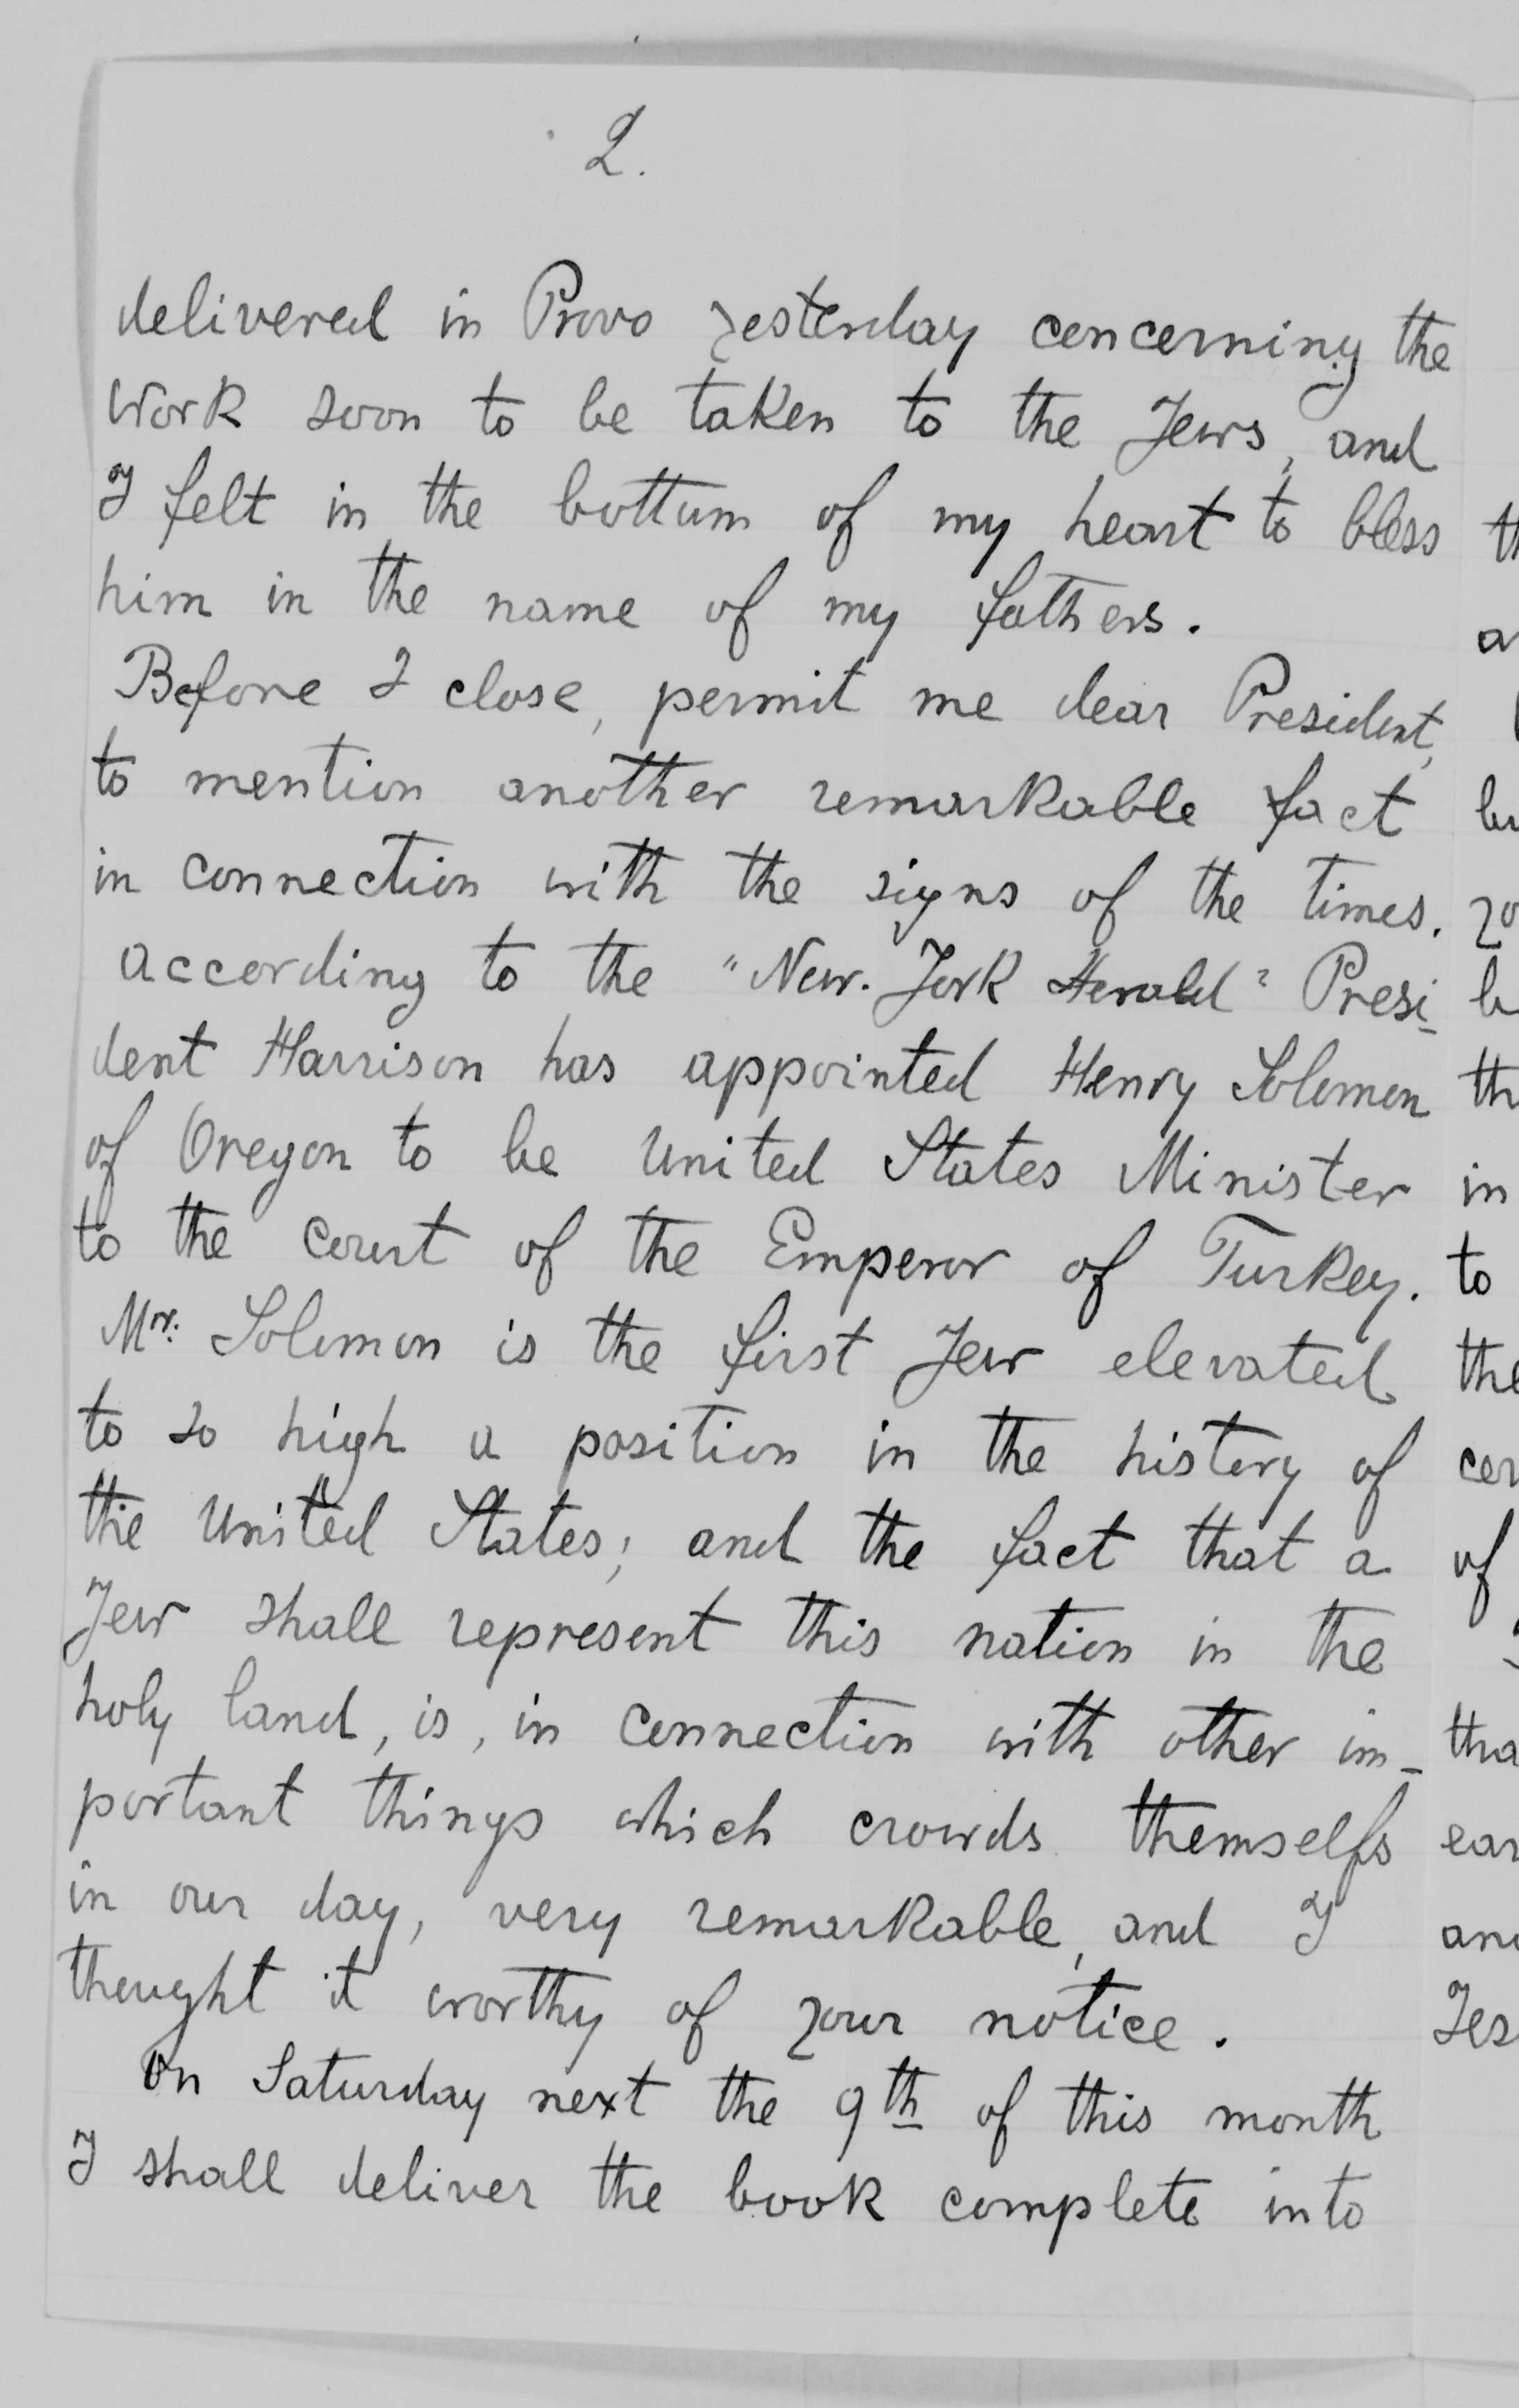 2.
delivered in Provo yesterday concerning the
work soon to be taken to the Jews, and
I felt in the bottum of my heart to bless
him in the name of my fathers.
Before I close, permit me dear President,
to mention another remarkable fact
in connection with the signs of the times.
according to the "New. York Herald" Presi-
dent Harrison has appointed Henry Solomon
of Oregon to be United States Minister
to the court of the Emperor of Turkey.
Mr. Solomon is the first Jew elevated
to so high a position in the history of
the United States; and the fact that a
Jew shall represent this nation in the
holy land, is, in connection with other im-
portant things which crowds themselfs
in our day, very remarkable, and I
thought it worthy of your notice.
On Saturday next the 9th of this month
I shall deliver the book complete into